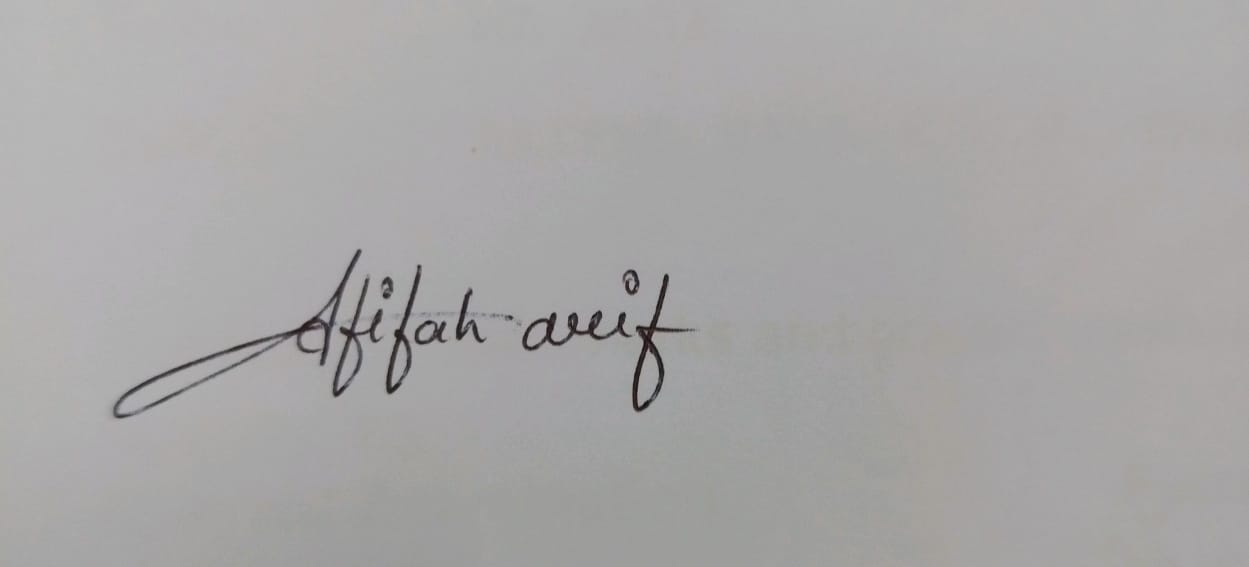 Afifah arif